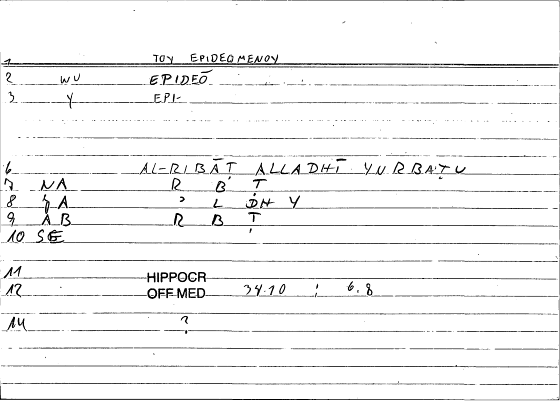 1 TOY EPIDEOMENOY
2 WU EPIDEŌ
3 Y EPI-
6 AL-RIBĀṬ ALLADHĪ YURBAṬU
7 NA R B Ṭ
8 A ʾ L DH Y
9 AB R B Ṭ
10 SE
11 HIPPOCR
12 OFF MED 34.10 ; 6.8
14 ?